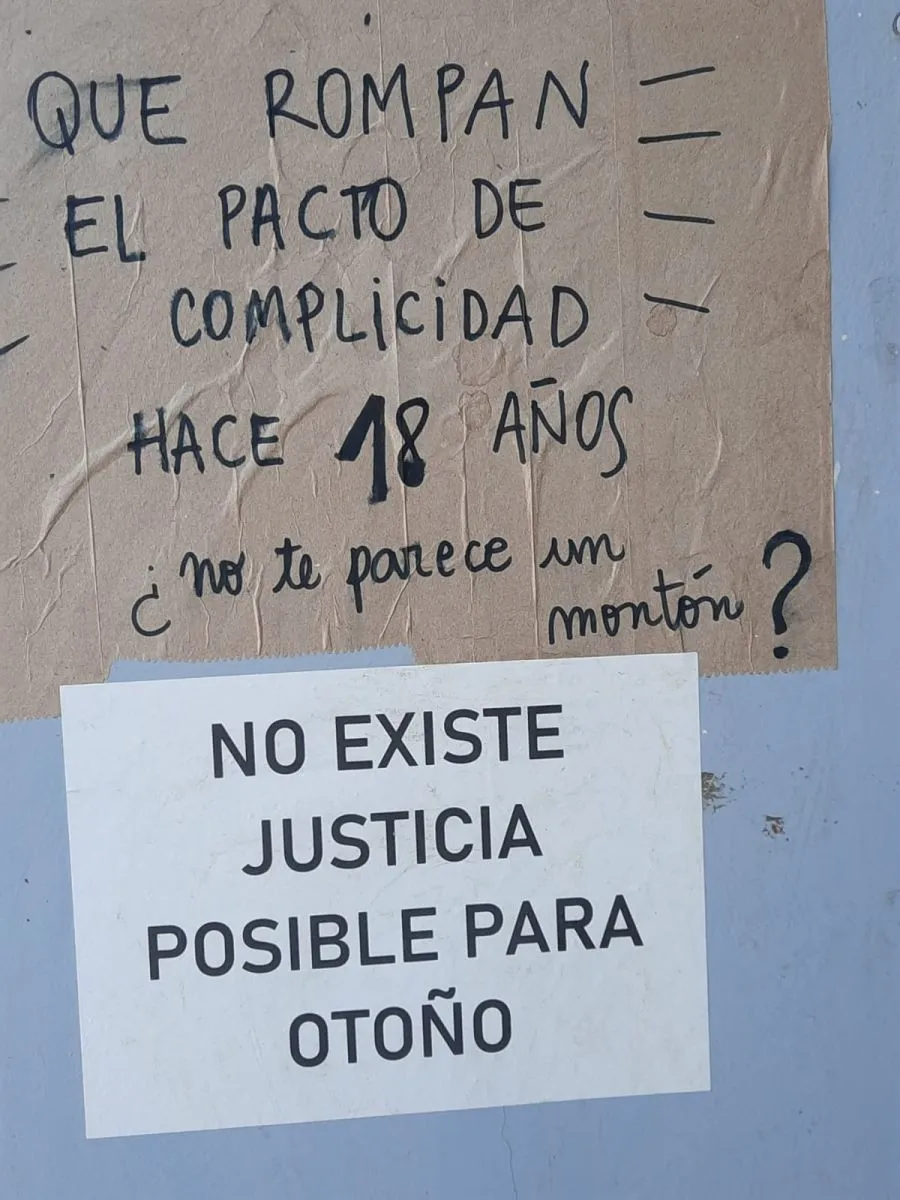 QUE ROMPAN
EL PACTO DE
COMPLICIDAD
HACE 18 AÑOS
¿no te parece un
montón?
NO EXISTE
JUSTICIA
POSIBLE PARA
OTOÑO